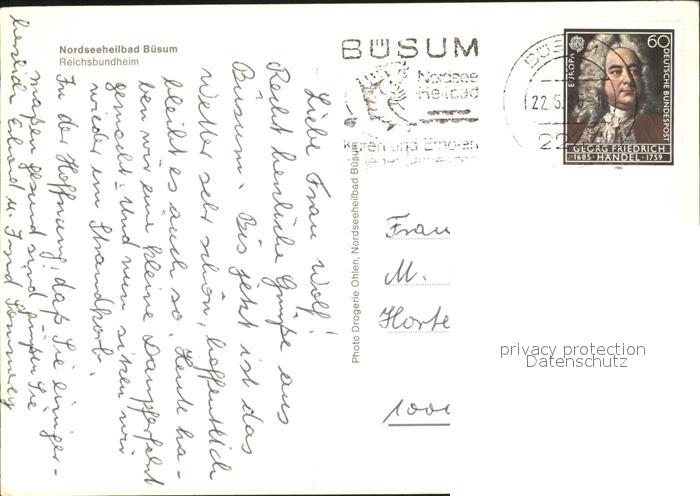 Nordseeheilbad Büsum
Reichsbundheim
Liebe Frau Wolf!
Recht herzliche Grüße aus
Büsum. Bis jetzt ist das
Wetter sehr schön, hoffentlich
bleibt es auch so. Heute ha-
ben wir eine kleine Dampferfahrt
gemacht und nun sitzen wir
wieder im Strandkorb.
In der Hoffnung, daß Sie einiger-
maßen gesund sind grüßen Sie
herzlich Erhard u.
Photo Drogerie Ohlen, Nordseeheilbad Büsum
BÜSUM
Nordsee
Heilbad
Kuren und Erholen
BÜSUM
22.5.
22
60
EUROPA
DEUTSCHE BUNDESPOST
GEORG FRIEDRICH
1685 HÄNDEL 1759
1985
Frau
M.
Horte
1000
privacy protection
Datenschutz